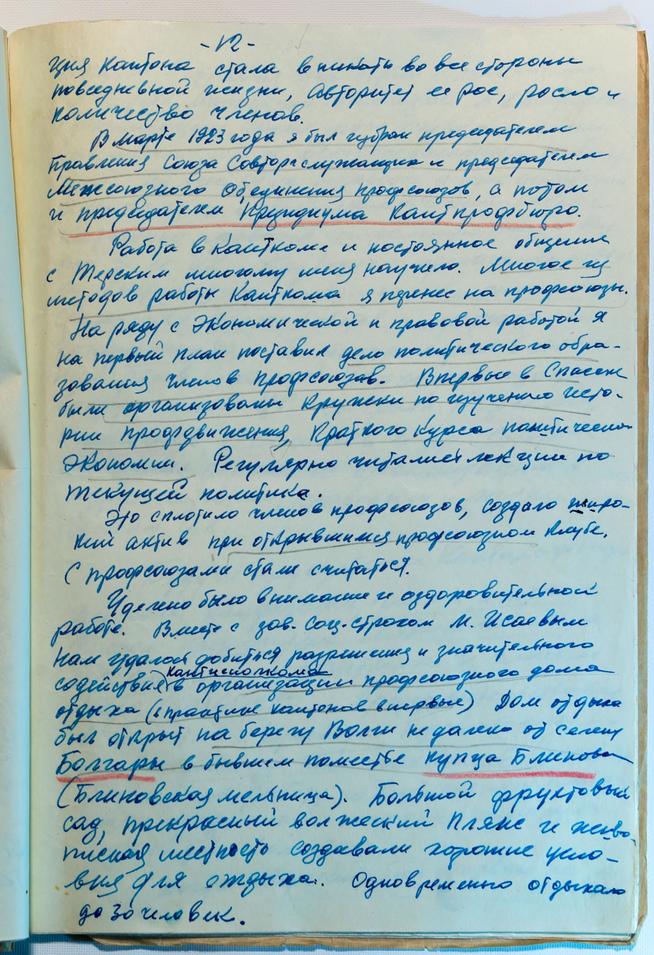 -12-
ция кантона стала вникать во все стороны
повседневной жизни, авторитет ее рос, росло и
количество членов.
В марте 1923 года я был избран председателем
Правления Союза Совторгслужащих и председателем
Межсоюзного Объединения профсоюзов, а потом
и председателем Президиума Кантпрофбюро.
Работа в Канткоме и постоянное общение
с Терским многому меня научило. Многое из
методов работы Канткома я перенес на профсоюзы.
На ряду с экономической и правовой работой я
на первый план поставил дело политического обра-
зования членов профсоюзов. Впервые в Спасске
были организованы кружки по изучению исто-
рии профдвижения, Краткого Курса политической
Экономии. Регулярно читались лекции по
текущей политике.
Это сплотило членов профсоюзов, создало широ-
кий актив при открывшимся профсоюзном клубе.
С профсоюзами стали считаться.
Уделено было внимание и оздоровительной
работе. Вместе с зав. соц-страхом М. Исаевым
нам удалось добиться разрешения и значительного
содействия Кантисполкома в организации профсоюзного дома
отдыха (в практике кантонов впервые) Дом отдыха
был открыт на берегу Волги недалеко от селения
Болгары в бывшем поместье купца Блинова
(Блиновская мельница). Большой фруктовый
сад, прекрасный волжский пляж и живо-
писная местность создавали хорошие усло-
вия для отдыха. Одновременно отдыхало
до 30 человек.